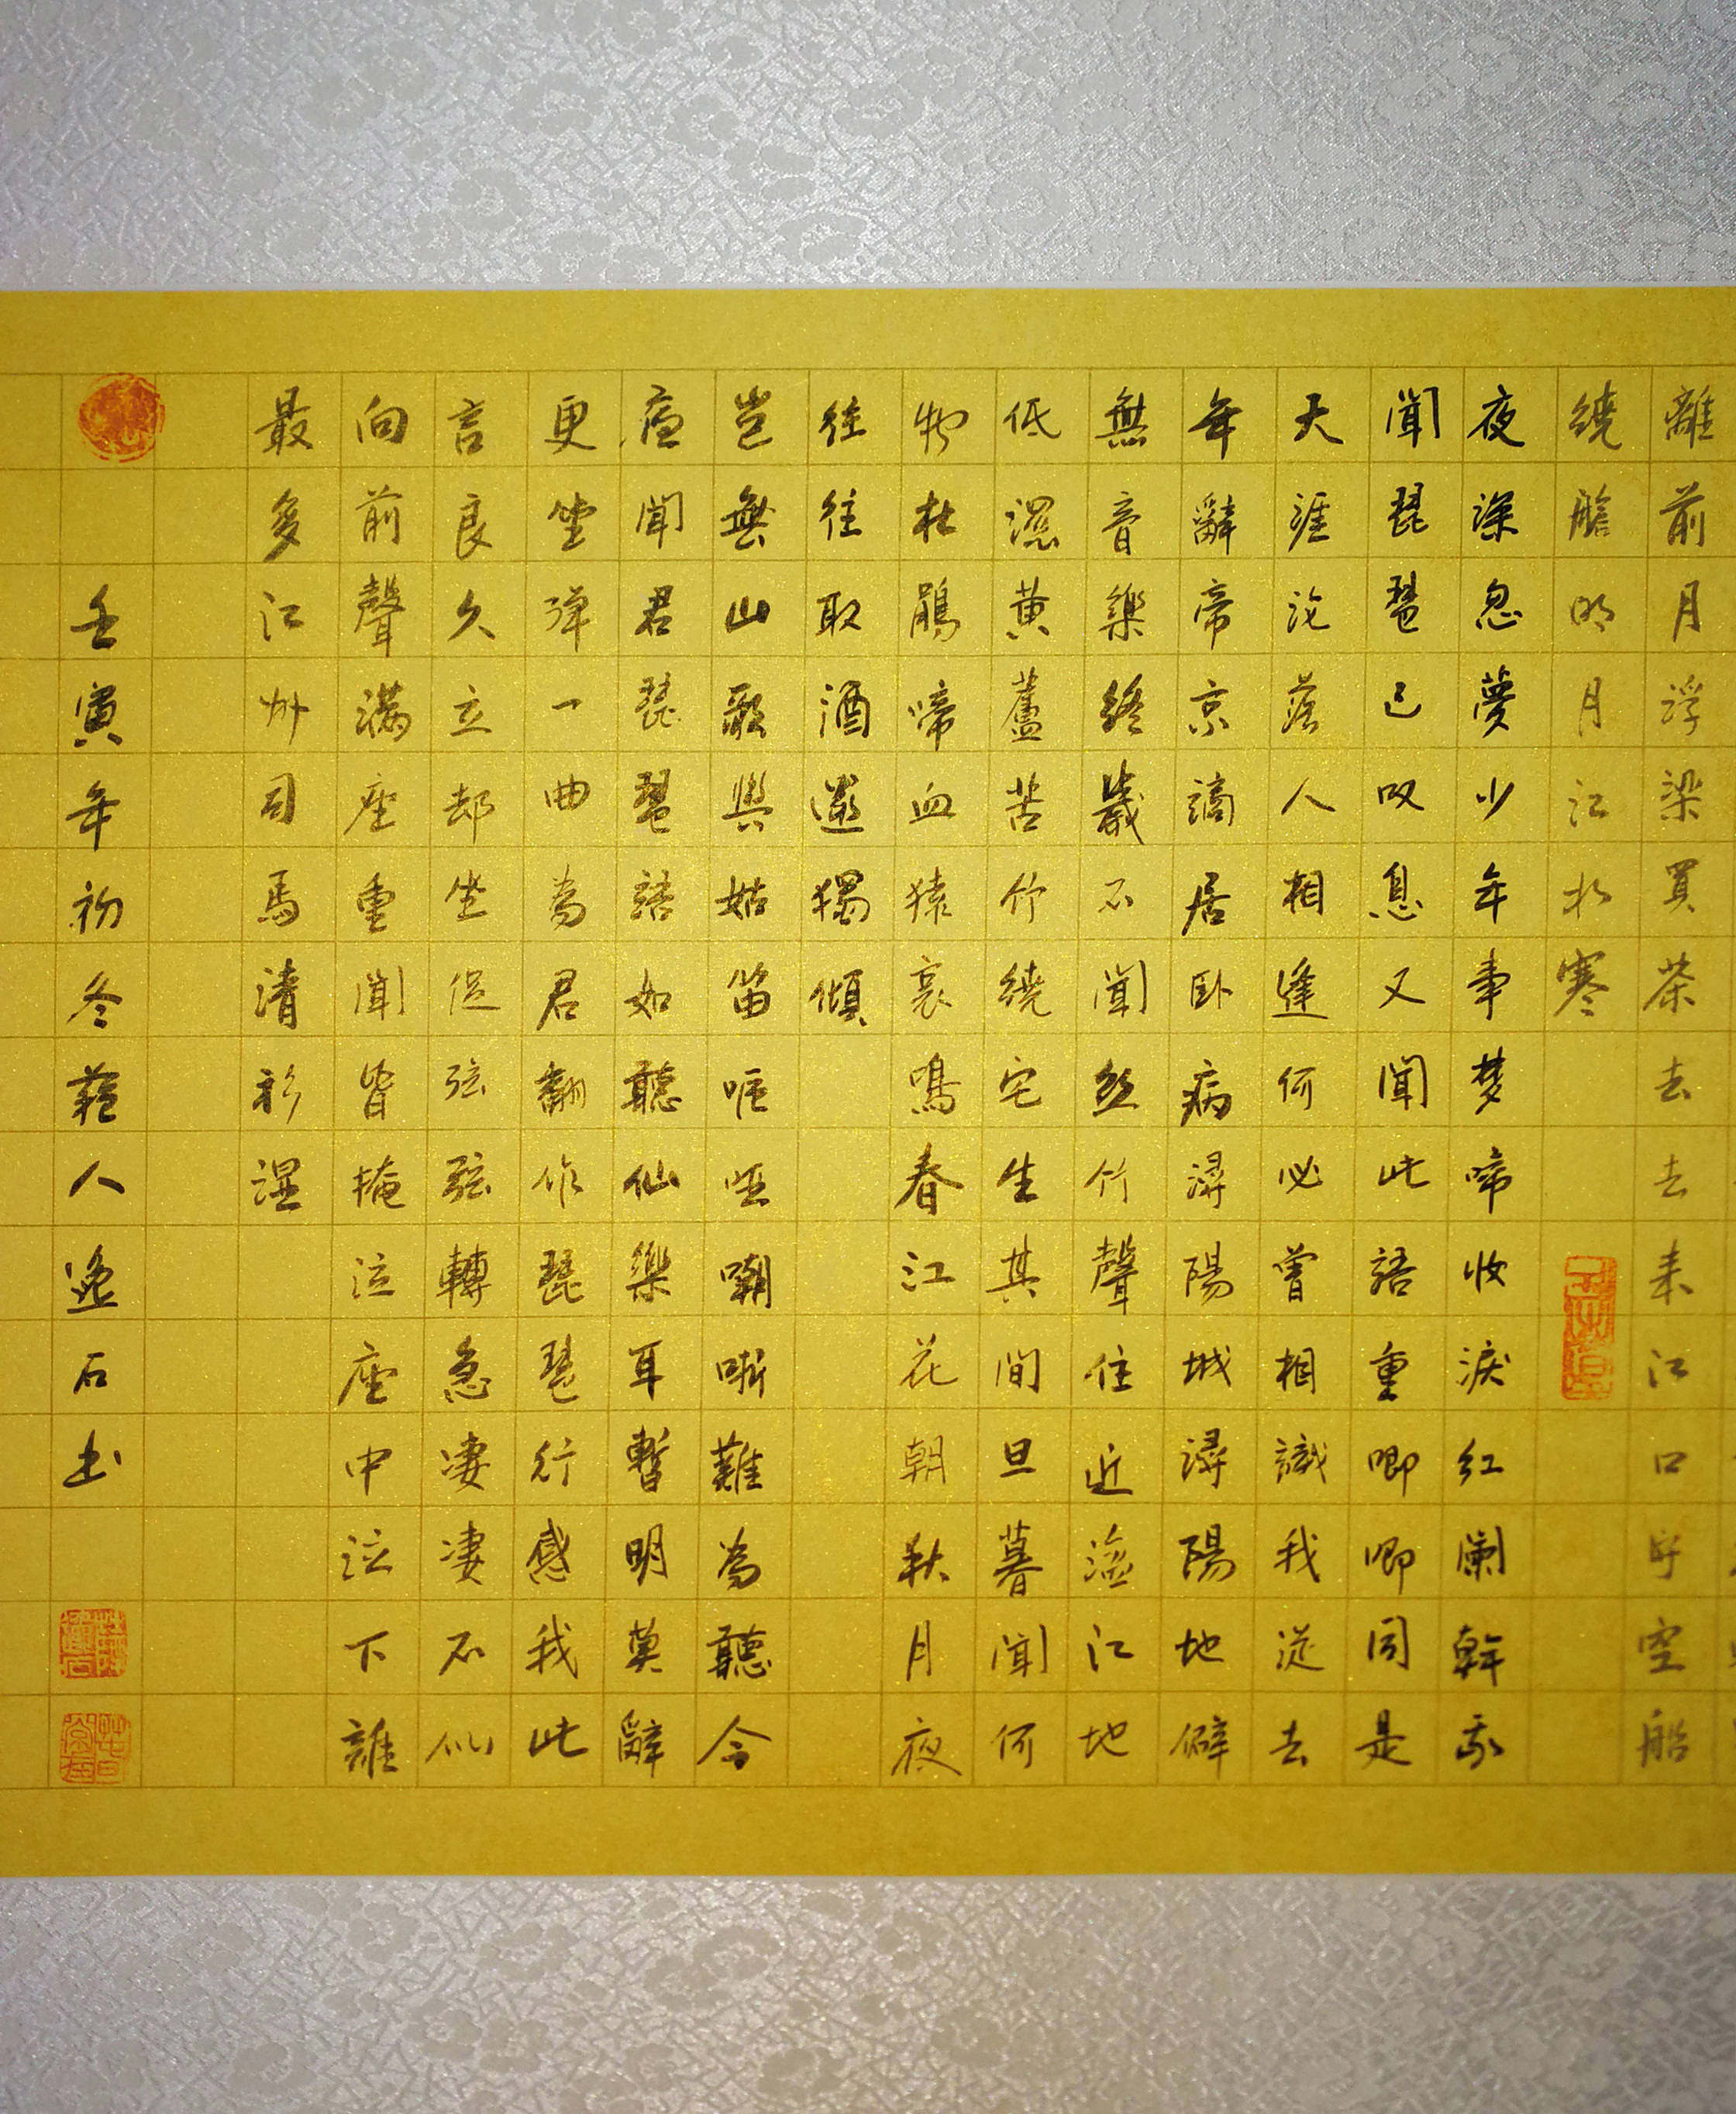 離前月浮梁買茶去去来江口守空船
繞艙明月江水寒
夜深忽夢少年事梦啼妝淚红闌幹我
聞琵琶已叹息又聞此語重唧唧同是
天涯沦落人相逢何必曾相識我從去
年辭帝京謫居卧病潯陽城潯陽地僻
無音樂終歲不聞丝竹聲住近湓江地
低濕黄蘆苦竹繞宅生其間旦暮聞何
物杜鵑啼血猿哀鳴春江花朝秋月夜
往往取酒還獨傾
豈無山歌與姑笛嘔哑嘲哳難為聽今
聞君琵琶語如聽仙樂耳暫明莫辭
更坐彈一曲為君翻作琵琶行感我此
言良久立却坐促弦弦轉急凄凄不似
向前聲满座重聞皆掩泣座中泣下誰
最多江州司馬清衫濕
壬寅年初冬人逸石书